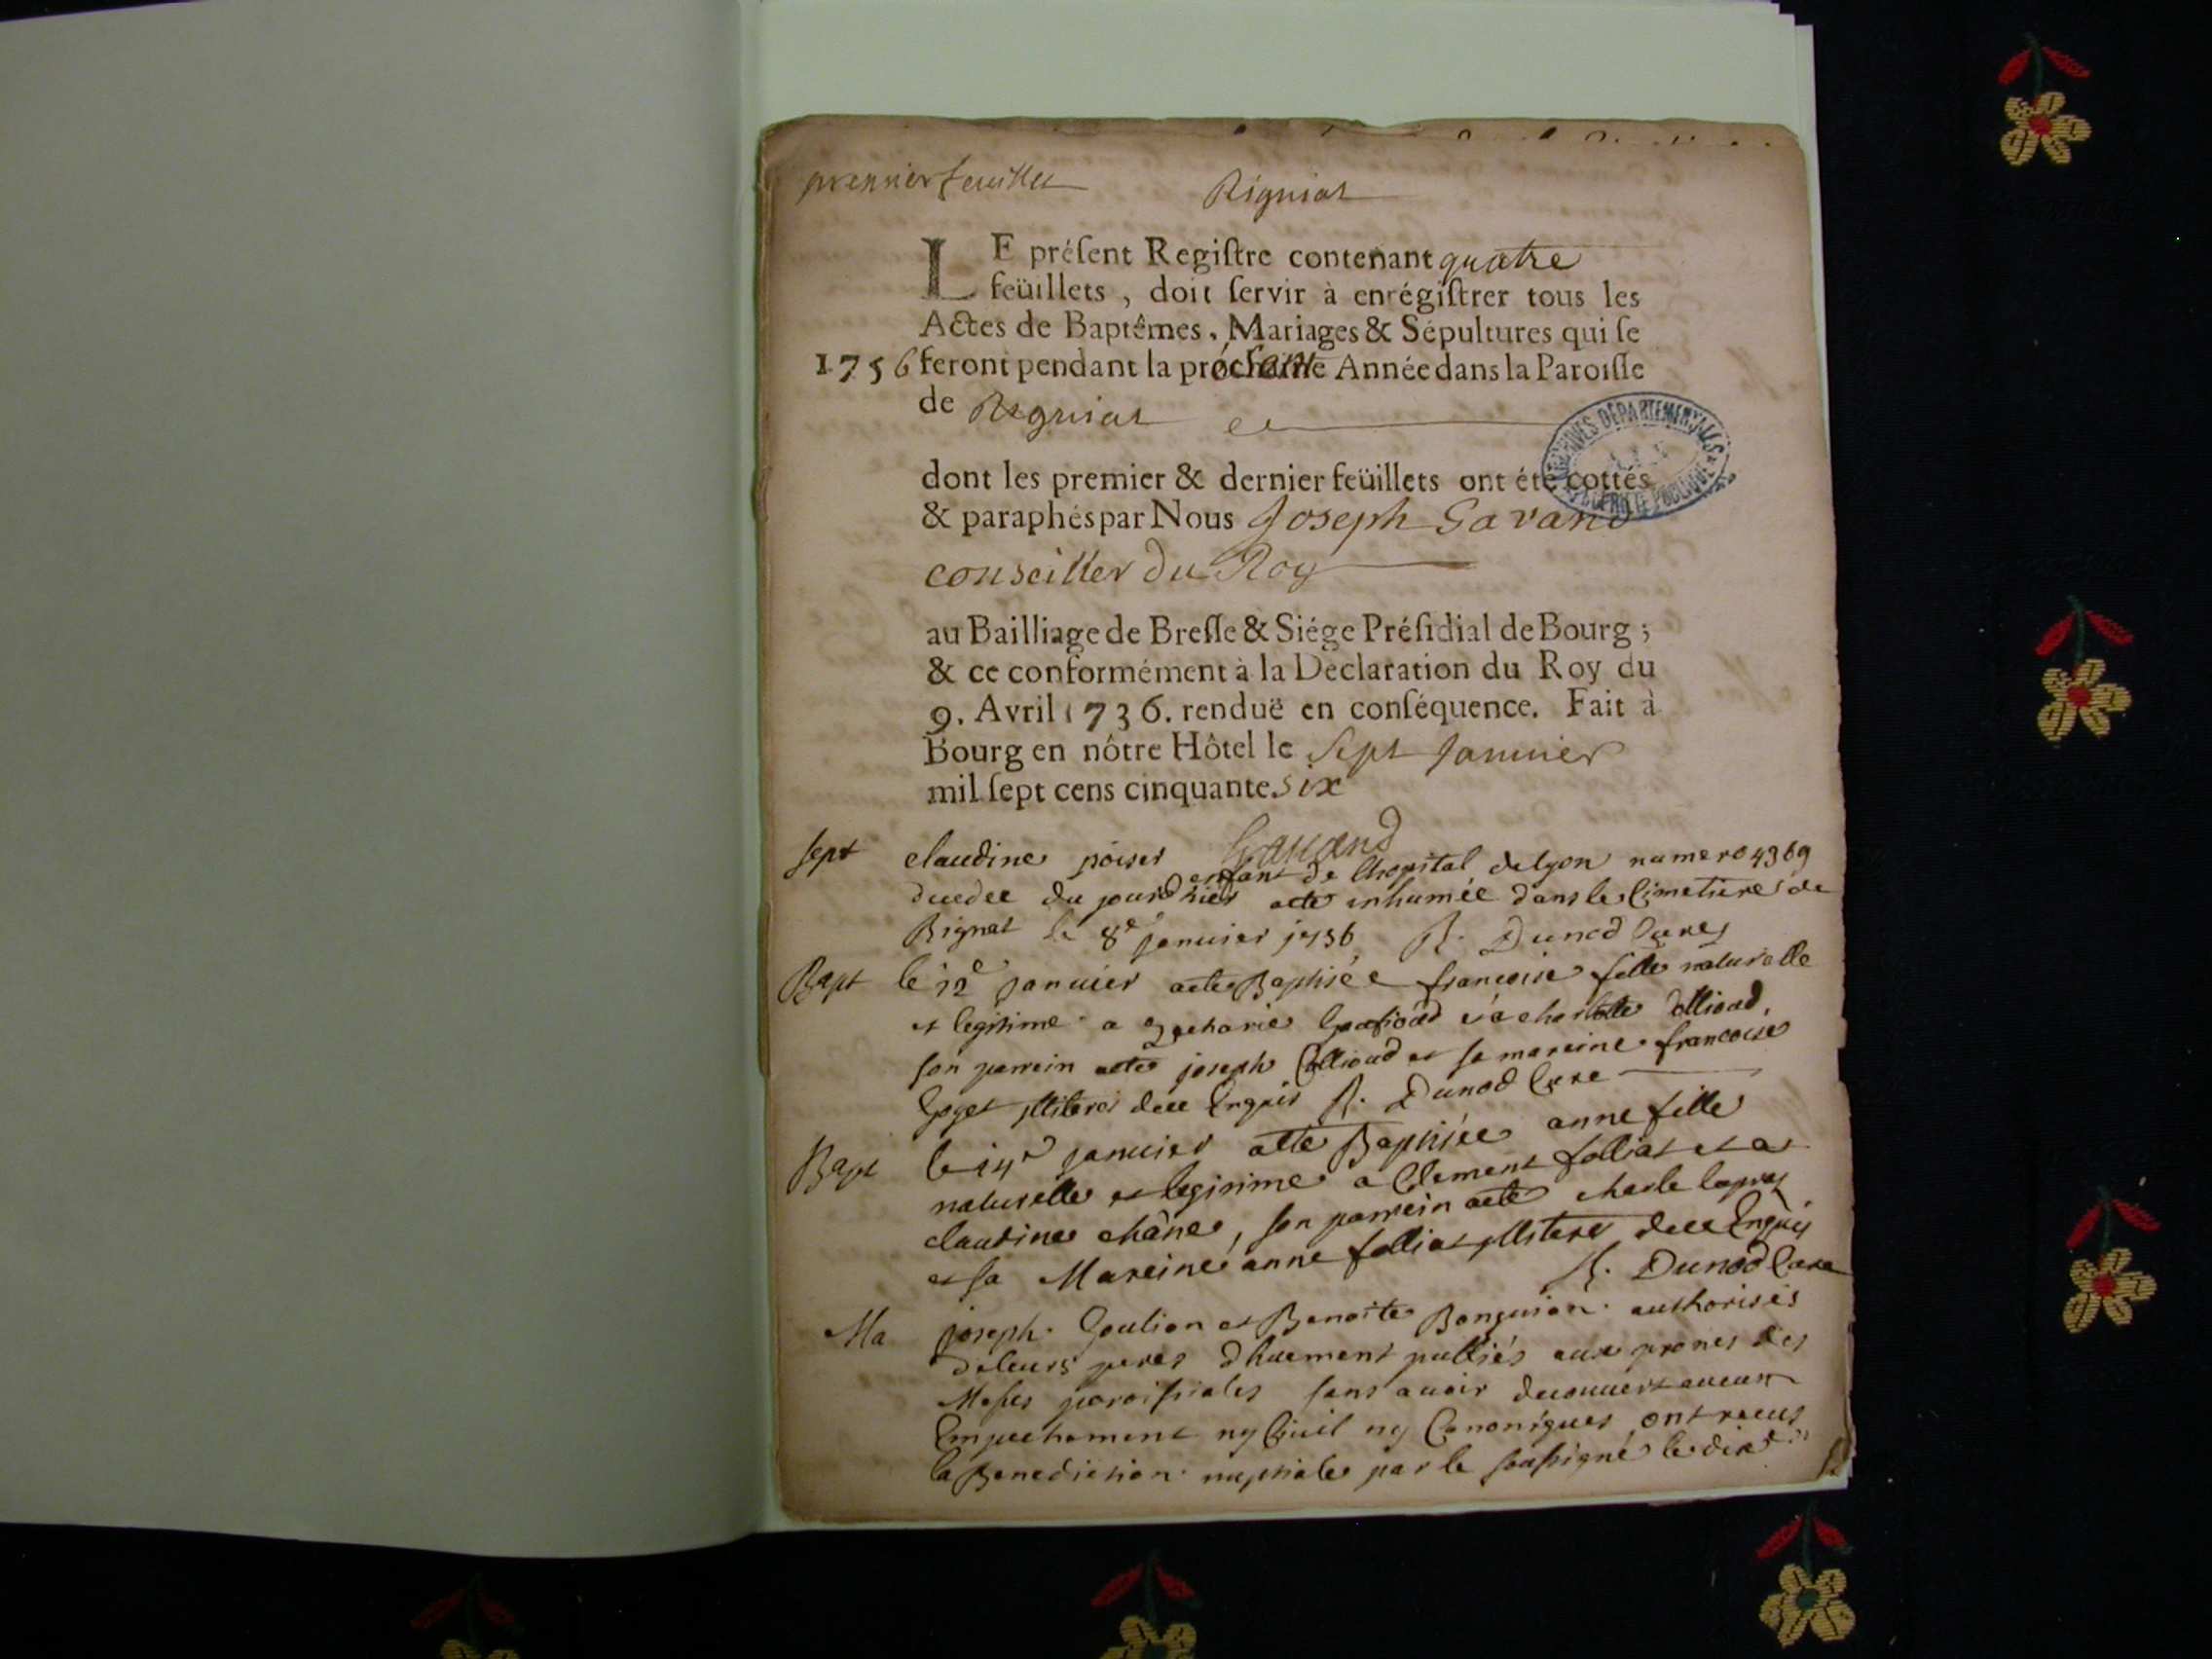 premier feuillet
Rigniat
LE préſent Regiſtre contenant quatre
feüillets, doit ſervir à enrégiſtrer tous les
Actes de Baptêmes, Mariages & Sépultures qui ſe
1756 feront pendant la Année dans la Paroiſſe
de Rigniat
ARCHIVES DÉPARTEMENTALES
dont les premier & dernier feüillets ont été cottés
& paraphés par Nous Joseph Gavand
conseiller du Roy
au Bailliage de Breſſe & Siége Préſidial de Bourg ;
& ce conformément à la Déclaration du Roy du
9. Avril 1736. renduë en conſéquence. Fait à
Bourg en nôtre Hôtel le sept Januier
mil ſept cens cinquante six
Gauand
sept claudine enfant de lhopital de lyon numero 4369
decedee du jourdhier a ete inhumée dans le Cimetiere de
Rignat le 8e januier 1756 Dunod Cure
Bapt le 12e januier a ete Baptisée francoise fille naturelle
et legitime a et a charlotte
son parrein a ete joseph et sa mareine francoise
Goyet de ce Enquis Dunod Cure
Bapt le 14e januier a ete Baptisée anne fille
naturelle et legitime a Clement folliat et a
claudine châne, son parrein a ete charle
et sa Mareine anne folliat de ce Enquis
Dunod Cure
Ma joseph Goulion et Benoite authorisés
de leurs peres dhuement publiés aux prones des
Messes paroissiales sans auoir decouuert aucun
Empechement ny Ciuil ny Canonique ont receus
la Benediction nuptiale par le soussigné le